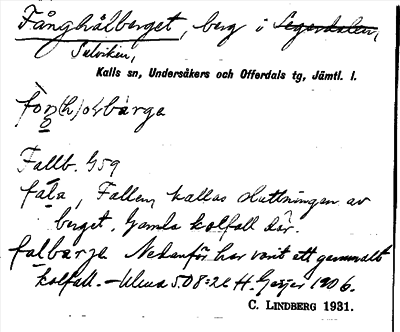 Fånghålberget, berg i Segerdalen,
Sulviken,
Kalls sn, Undersåkers och Offerdals tg, Jämtl. l.
fon(h)olbärga
Fallb. G59
fala, Fallen kallas sluttningen av
berget. Gamla kolfall där.
falbarja Nedanför har varit ett gammalt
kolfall. — Ulma 508:2c H. Geijer 1906.
C. LINDBERG 1931.